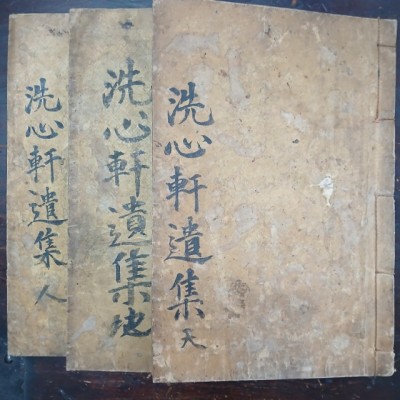 洗心軒遺集 天
洗心軒遺集 地
洗心軒遺集 人